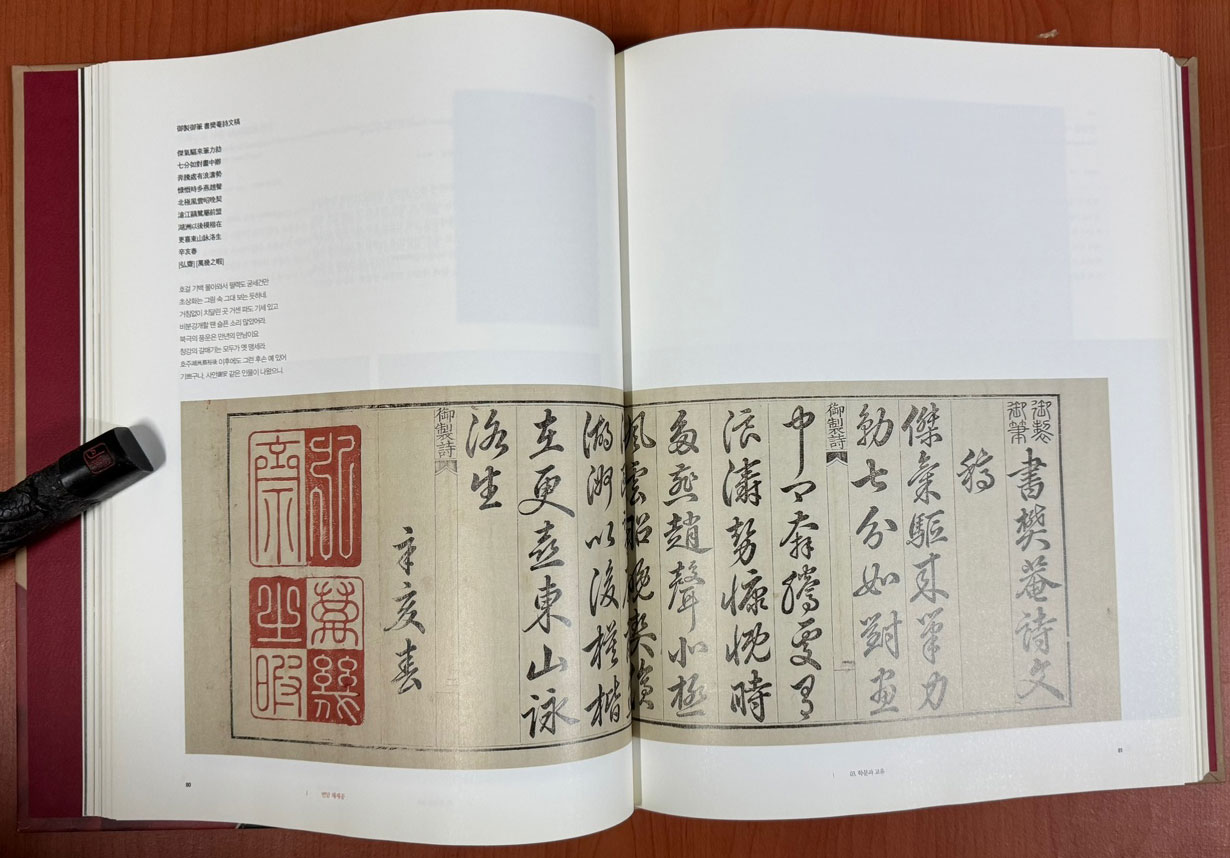 御製御筆 書樊菴詩文稿
傑氣驅來筆力勍
七分如對畫中卿
奔騰處有浪濤勢
慷慨時多燕趙聲
北極風雲昭晩契
滄江鷗鷺屬前盟
湖洲以後模楷在
更喜東山詠洛生
辛亥春
[弘齋] [萬幾之暇]
호걸 기백 몰아와서 필력도 굳세건만
초상화는 그림 속 그대 보는 듯하네
거침없이 치달린 곳 거센 파도 기세 있고
비분강개할 땐 슬픈 소리 많았어라
북극의 풍운은 만년의 만남이요
창강의 갈매기는 모두가 옛 맹세라
호주 이후에도 그런 후손 예 있어
기쁘구나, 사안 같은 인물이 나왔으니
御製
御筆
書樊菴詩文
稿
傑氣驅來筆力
勍七分如對畫
御製詩
中卿奔騰處有
浪濤勢慷慨時
多燕趙聲北極
風雲昭晩契滄
湖洲以後模楷
在更喜東山詠
洛生
御製詩
辛亥春
弘齋
萬幾之暇
80
번암 채제공
03. 학문과 교유
81